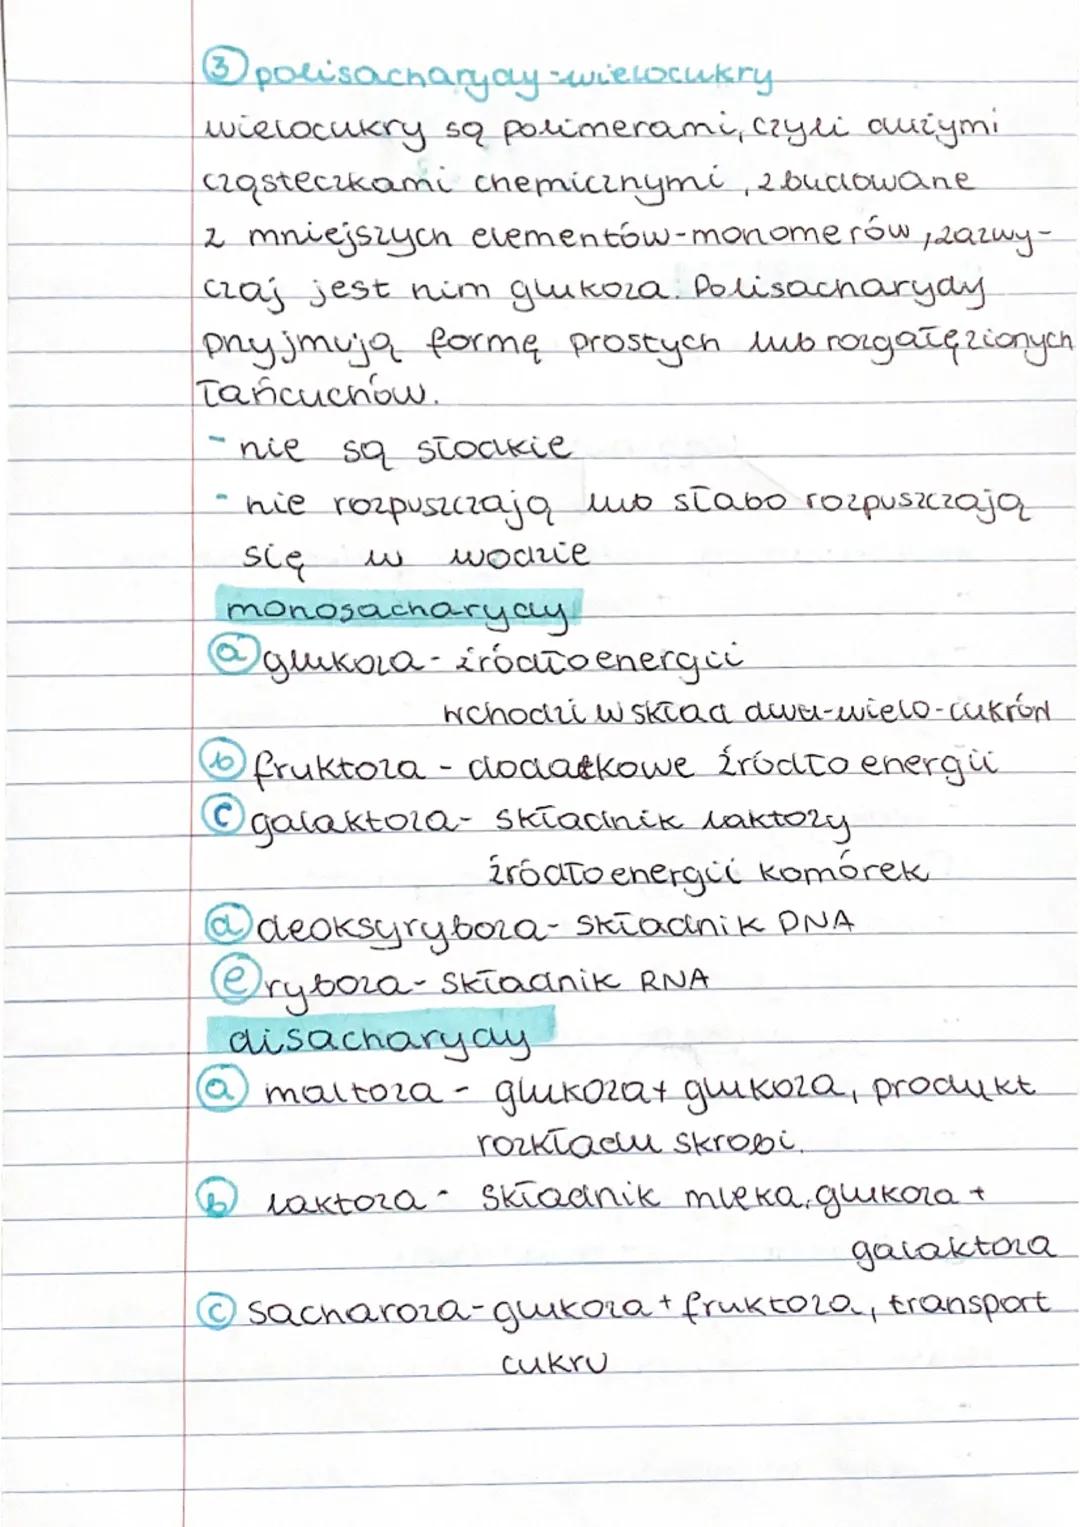 ③ polisacharydy - wielocukry
wielocukry są polimerami, czyli dużymi
cząsteczkami chemicznymi, zbudowane
z mniejszych elementów - monomerów, zazwy-
czaj jest nim glukoza. Polisacharydy
przyjmują formę prostych lub rozgałęzionych
łańcuchów.
- nie są słodkie
- nie rozpuszczają lub słabo rozpuszczają
się w wodzie
monosacharydy
ⓐ glukoza - źródło energii
wchodzi w skład dwu-wielo-cukrów
ⓑ fruktoza - dodatkowe źródło energii
ⓒ galaktoza - składnik laktozy
źródło energii komórek
ⓓ deoksyryboza - składnik DNA
ⓔ ryboza - składnik RNA
disacharydy
ⓐ maltoza - glukoza + glukoza, produkt
rozkładu skrobi.
ⓑ laktoza - składnik mleka, glukoza +
galaktoza
ⓒ sacharoza - glukoza + fruktoza, transport
cukru